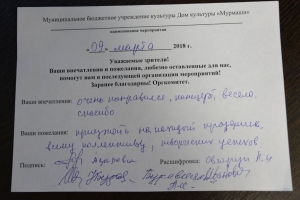 Муниципальное бюджетное учреждение культуры Дом культуры «Мурмаши»
наименование мероприятия
«09» марта 2018 г.
Уважаемые зрители!
Ваши впечатления и пожелания, любезно оставленные для нас,
помогут нам в последующей организации мероприятий!
Заранее благодарны! Оргкомитет.
Ваши впечатления: очень понравился, концерт, весело,
спасибо
Ваши пожелания: приезжать на каждый праздник,
всему коллективу, творческих успехов
Подпись:
Расшифровка: